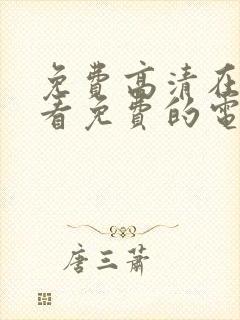 免費高清在
看免費的電
唐三蕭